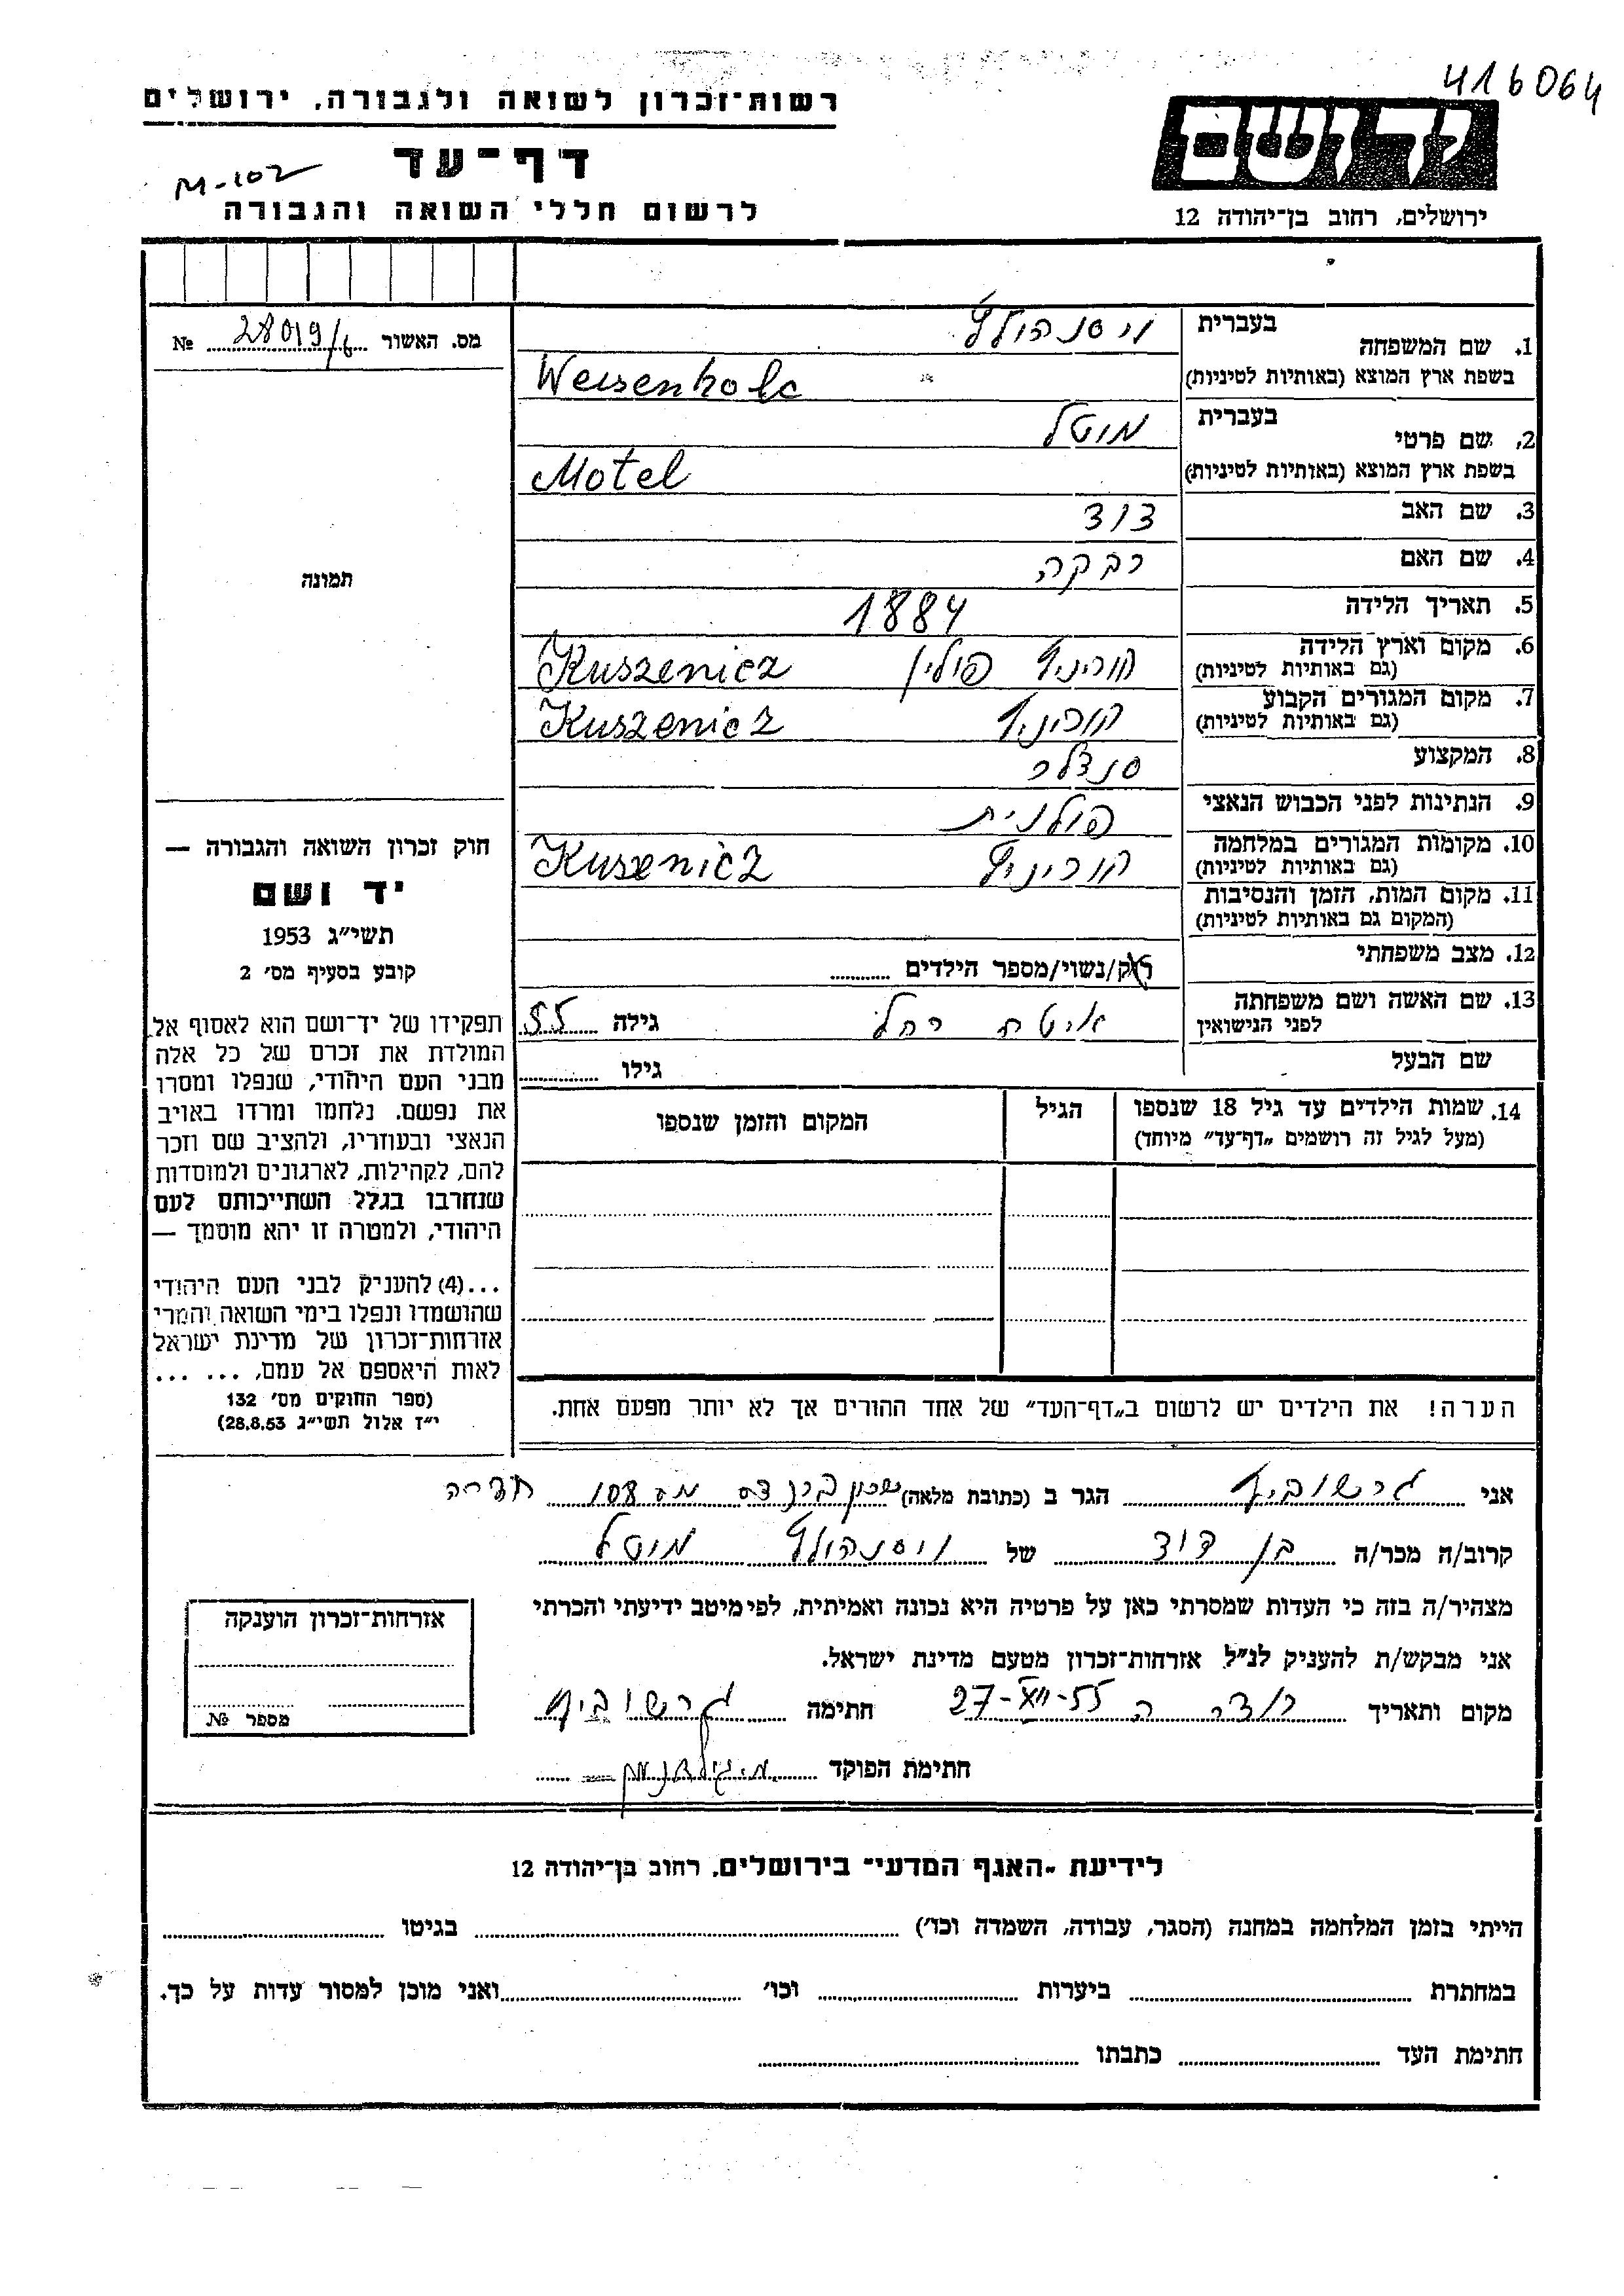 416064
רשות־זכרון לשואה ולגבורה, ירושלים
דף־עד
M-102
לרשום חללי השואה והגבורה
יד ושם
ירושלים, רחוב בן־יהודה 12
מס. האשור 28019/6 №
תמונה
חוק זכרון השואה והגבורה —
יד ושם
תשי״ג 1953
קובע בסעיף מס׳ 2
תפקידו של יד־ושם הוא לאסוף אל
המולדת את זכרם של כל אלה
מבני העם היהודי, שנפלו ומסרו
את נפשם. נלחמו ומרדו באויב
הנאצי ובעוזריו, ולהציב שם וזכר
להם, לקהילות, לארגונים ולמוסדות
שנחרבו בגלל השתייכותם לעם
היהודי, ולמטרה זו יהא מוסמך —
...(4) להעניק לבני העם היהודי
שהושמדו ונפלו בימי השואה והמרי
אזרחות־זכרון של מדינת ישראל
לאות היאספם אל עמם, ... ...
(ספר החוקים מס׳ 132
י״ז אלול תשי״ג 28.8.53)
1. שם המשפחה בעברית ויסנהולץ
בשפת ארץ המוצא (באותיות לטיניות) Weisenholc
2. שם פרטי בעברית מוטל
בשפת ארץ המוצא (באותיות לטיניות) Motel
3. שם האב דוד
4. שם האם רבקה
5. תאריך הלידה 1884
6. מקום וארץ הלידה פולין Kuszenicz
(גם באותיות לטיניות)
7. מקום המגורים הקבוע Kuszenicz
(גם באותיות לטיניות)
8. המקצוע סנדלר
9. הנתינות לפני הכבוש הנאצי פולנית
10. מקומות המגורים במלחמה Kuszenicz
(גם באותיות לטיניות)
11. מקום המות, הזמן והנסיבות
(המקום גם באותיות לטיניות)
12. מצב משפחתי רווק/נשוי/מספר הילדים
13. שם האשה ושם משפחתה איטה רחל גילה 55
לפני הנישואין
שם הבעל גילו
14. שמות הילדים עד גיל 18 שנספו הגיל המקום והזמן שנספו
(מעל לגיל זה רושמים „דף־עד״ מיוחד)
הערה! את הילדים יש לרשום ב„דף־העד״ של אחד ההורים אך לא יותר מפעם אחת.
אני גרשוביץ הגר ב (כתובת מלאה) שכון ברנדס מס 108 חדרה
קרוב/ה מכר/ה בן דוד של ויסנהולץ מוטל
מצהיר/ה בזה כי העדות שמסרתי כאן על פרטיה היא נכונה ואמיתית, לפי מיטב ידיעתי והכרתי
אני מבקש/ת להעניק לנ״ל אזרחות־זכרון מטעם מדינת ישראל.
מקום ותאריך 27-XII-55 חתימה גרשוביץ
חתימת הפוקד
אזרחות־זכרון הוענקה
מספר №
לידיעת „האגף המדעי״ בירושלים, רחוב בן־יהודה 12
הייתי בזמן המלחמה במחנה (הסגר, עבודה, השמדה וכו׳) בגיטו
במחתרת ביערות וכו׳ ואני מוכן למסור עדות על כך.
חתימת העד כתבתו